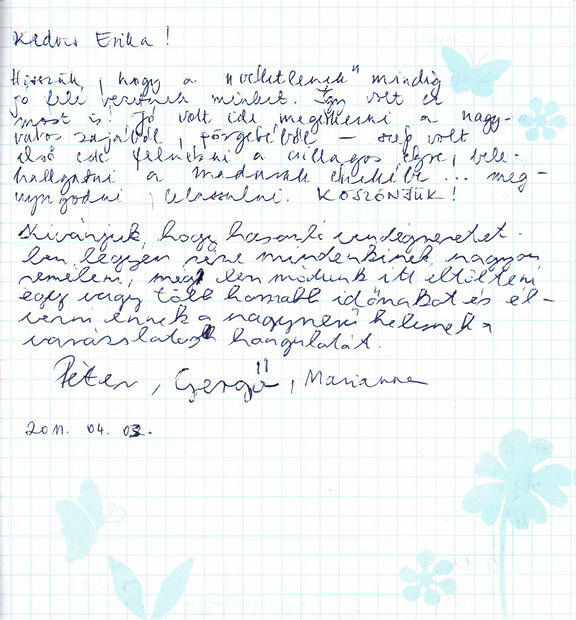 Kedves Erika!
Hisszük, hogy a "véletlenek" mindig
jó felé vezetnek minket. Így volt ez
most is! Jó volt ide megérkezni a nagy-
város zajából, pörgéséből – szép volt
első este felnézni a csillagos égre, bele-
hallgatni a madarak énekébe ... meg-
nyugodni, lelassulni. KÖSZÖNJÜK!
Kívánjuk, hogy hasonló vendégszeretet-
ben legyen része mindenkinek, nagyon
remélem, még lesz módunk itt eltölteni
egy vagy több hosszabb időszakot és él-
vezni ennek a nagyszerű helynek a
varázslatos hangulatát.
Péter, Gergő, Marianna
2011. 04. 03.